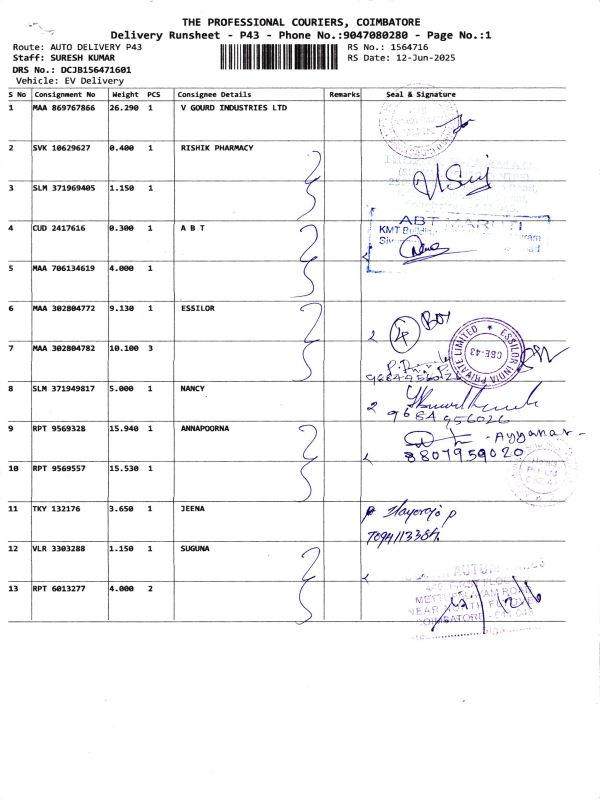 THE PROFESSIONAL COURIERS, COIMBATORE
Delivery Runsheet - P43 - Phone No.:9047080280 - Page No.:1
Route: AUTO DELIVERY P43
Staff: SURESH KUMAR
DRS No.: DCJB156471601
Vehicle: EV Delivery
RS No.: 1564716
RS Date: 12-Jun-2025
S No Consignment No Weight PCS Consignee Details Remarks Seal & Signature
1 MAA 869767866 26.290 1 V GOURD INDUSTRIES LTD
2 SVK 10629627 0.400 1 RISHIK PHARMACY
3 SLM 371969405 1.150 1
4 CUD 2417616 0.300 1 A B T
ABT MARUTI
KMT
5 MAA 706134619 4.000 1
6 MAA 302804772 9.130 1 ESSILOR
2 4 Box
ESSILOR INDIA PRIVATE LIMITED
CBE-43
7 MAA 302804782 10.100 3
9684956026
8 SLM 371949817 5.000 1 NANCY
2 9684956026
9 RPT 9569328 15.940 1 ANNAPOORNA
- Ayyanar -
8807959020
10 RPT 9569557 15.530 1
11 TKY 132176 3.650 1 JEENA
12 VLR 3303288 1.150 1 SUGUNA
13 RPT 6013277 4.000 2
METTUPALAYAM ROAD
NEAR
COIMBATORE